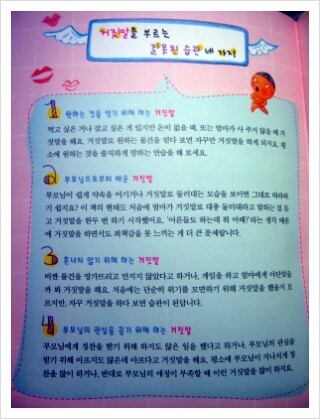 거짓말을 부르는
잘못된 습관 네 가지
1 원하는 것을 얻기 위해 하는 거짓말
먹고 싶은 거나 갖고 싶은 게 있지만 돈이 없을 때, 또는 엄마가 사 주지 않을 때 거
짓말을 해요. 거짓말로 원하는 물건을 얻다 보면 자꾸만 거짓말을 하게 되지요. 평
소에 원하는 것을 솔직하게 말하는 연습을 해 보세요.
2 부모님으로부터 배운 거짓말
부모님이 쉽게 약속을 어기거나 거짓말로 둘러대는 모습을 보이면 그대로 따라하
기 쉽지요? 이 책의 현태도 처음에 엄마가 거짓말로 대충 둘러대라고 말하는 걸 듣
고 거짓말을 한두 번 하기 시작했어요. '어른들도 하는데 뭐 어때?'라는 생각 때문
에 거짓말을 하면서도 죄책감을 못 느끼는 게 더 큰 문제랍니다.
3 혼나지 않기 위해 하는 거짓말
비싼 물건을 망가뜨리고 만지지 않았다고 하거나, 게임을 하고 엄마에게 야단맞을
까 봐 거짓말을 해요. 처음에는 단순히 위기를 모면하기 위해 거짓말을 했을지 모
르지만, 자꾸 거짓말을 하다 보면 습관이 된답니다.
4 부모님의 관심을 끌기 위해 하는 거짓말
부모님에게 칭찬을 받기 위해 하지도 않은 일을 했다고 하거나, 부모님의 관심을
받기 위해 아프지도 않은데 아프다고 거짓말을 해요. 평소에 부모님이 지나치게 칭
찬을 많이 하거나, 반대로 부모님의 애정이 부족할 때 이런 거짓말을 많이 하지요.